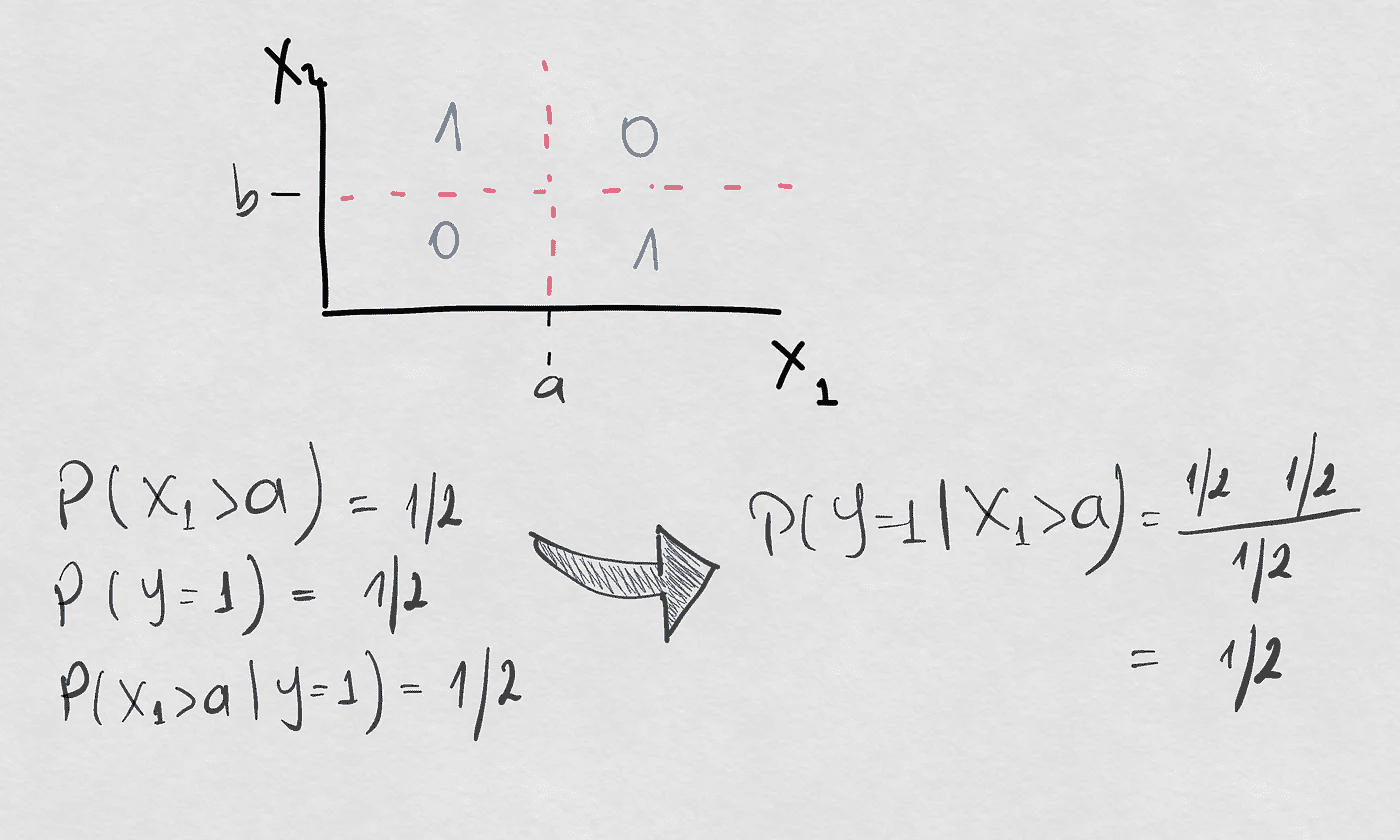 X₂
1 0
b
0 1
a
X₁
P(X₁>a) = 1/2
P(y=1) = 1/2
P(X₁>a|y=1) = 1/2
P(y=1|X₁>a) = 1/2 1/2
1/2
= 1/2